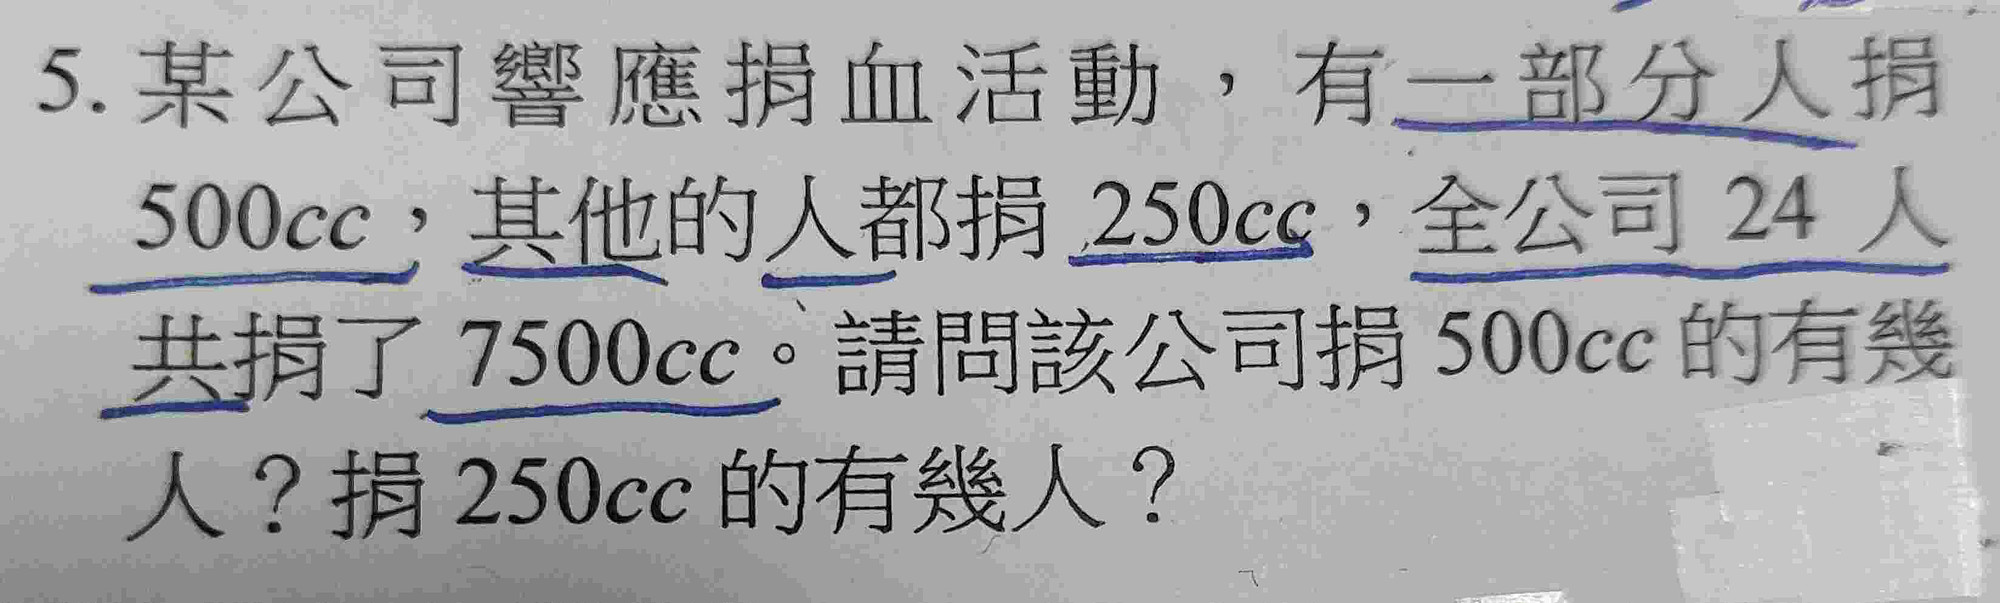 5. 某公司響應捐血活動，有一部分人捐
500cc，其他的人都捐 250cc，全公司 24 人
共捐了 7500cc。請問該公司捐 500cc 的有幾
人？捐 250cc 的有幾人？